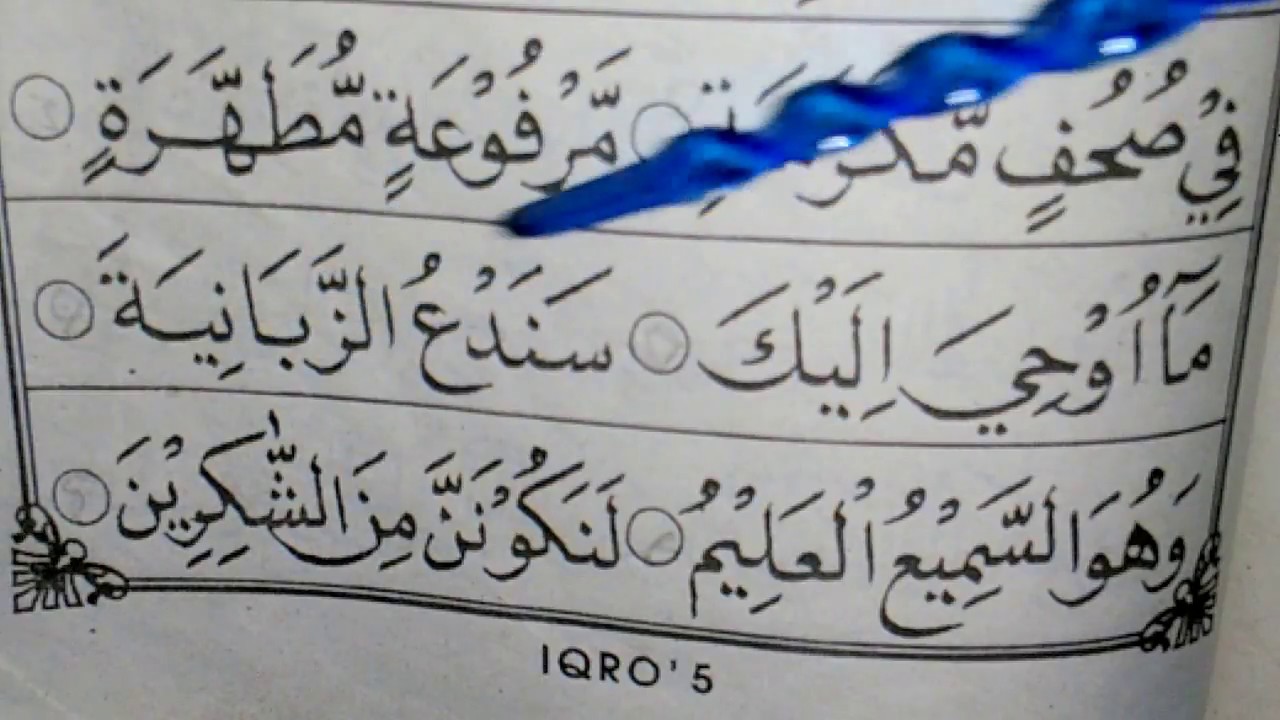 فِيْ صُحُفٍ مَّرْفُوْعَةٍ مُّطَهَّرَةٍ
مَآ اُوْحِيَ اِلَيْكَ سَنَدْعُ الزَّبَانِيَةَ
وَهُوَ السَّمِيْعُ الْعَلِيْمُ لَنَكُوْنَنَّ مِنَ الشّٰكِرِيْنَ
IQRO'5